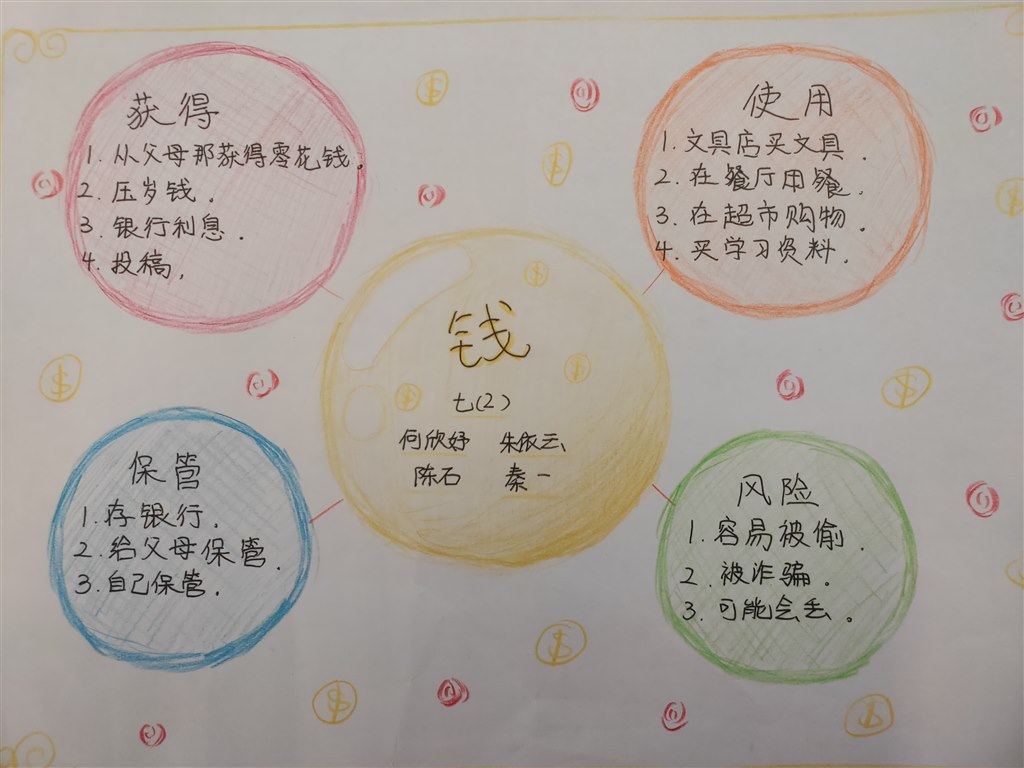 获得
1. 从父母那获得零花钱.
2. 压岁钱.
3. 银行利息.
4. 投稿,
使用
1. 文具店买文具.
2. 在餐厅用餐.
3. 在超市购物.
4. 买学习资料.
钱
七(2)
何欣妤 朱依云
陈石 秦一
保管
1. 存银行.
2. 给父母保管.
3. 自己保管.
风险
1. 容易被偷.
2. 被诈骗.
3. 可能会丢。